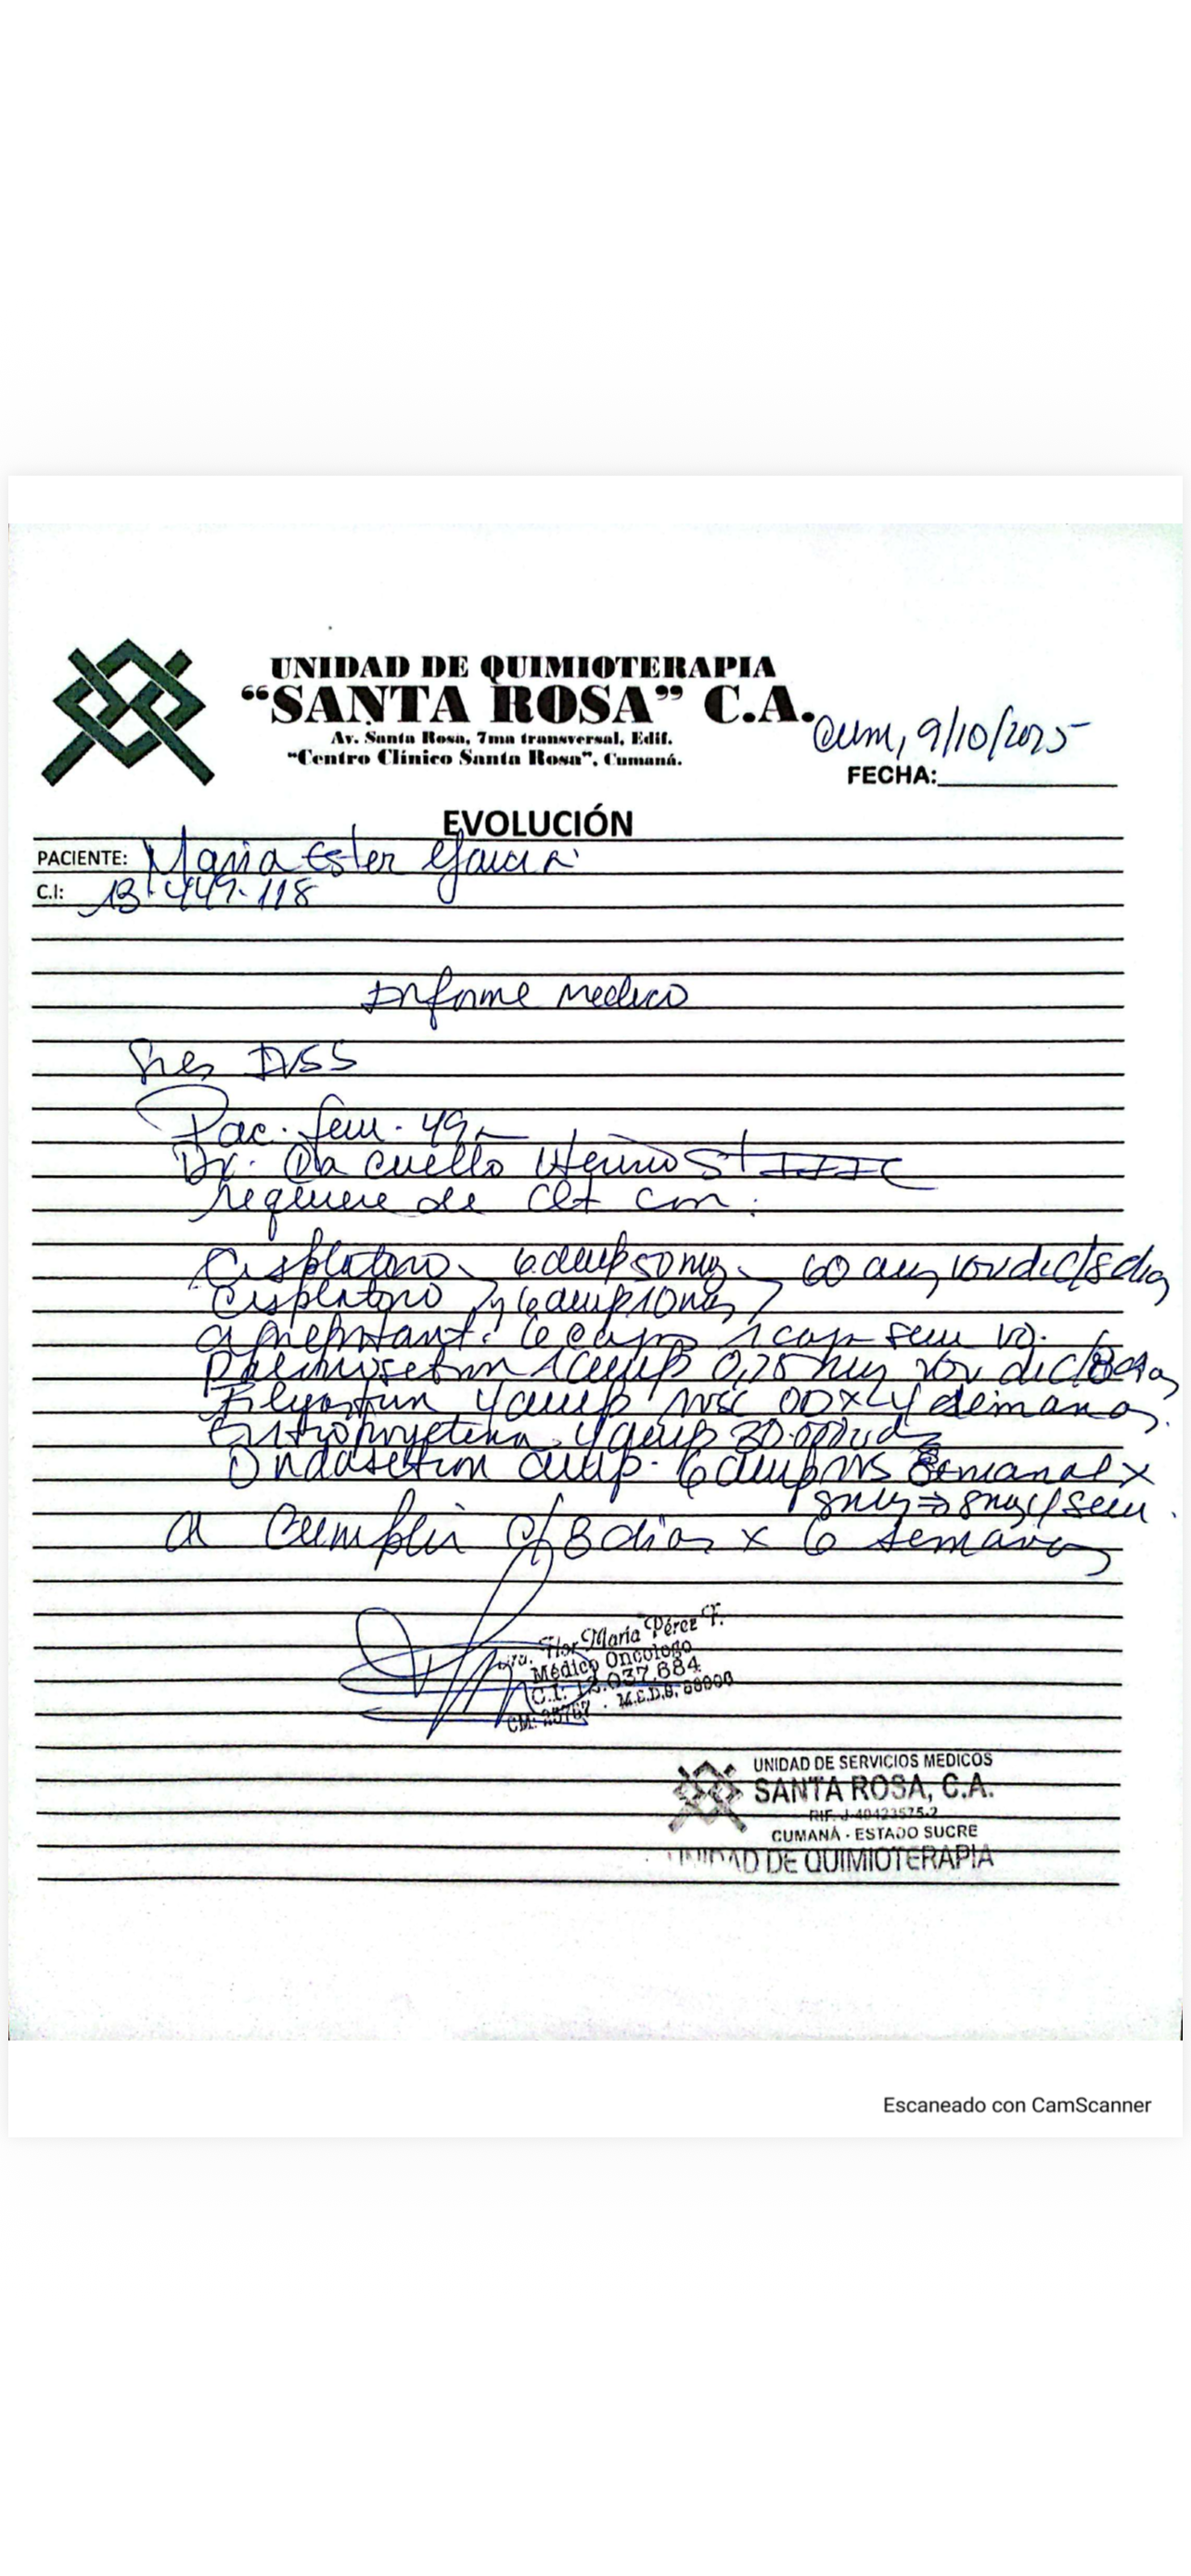 UNIDAD DE QUIMIOTERAPIA
“SANTA ROSA” C.A.
Av. Santa Rosa, 7ma transversal, Edif.
“Centro Clínico Santa Rosa”, Cumaná.
Cum, 9/10/2025
FECHA:
EVOLUCIÓN
PACIENTE: Maria Ester Garcia
C.I: 13.449.118
Informe Medico
Sres IVSS
Pac. fem. 49
Dx. Ca cuello Uterino St IIIC
requiere de con:
Cisplatino 6 amp 50 mg 60 mg c/8 dias
Cisplatino 6 amp 10 mg
6 caps 1 cap sem VO.
amp 0,25 mg
4 amp x 4 semanas.
4 amp 30.000 uds
Ondasetron amp. 6 amp semanal x
8mg => 8mg c/sem.
a Cumplir c/8 dias x 6 semanas
Dra. Flor María Pérez F.
Médico Oncologo
C.I: 12.037.684
CM: M.E.D.S.
UNIDAD DE SERVICIOS MEDICOS
SANTA ROSA, C.A.
RIF. J-40423575-2
CUMANÁ - ESTADO SUCRE
UNIDAD DE QUIMIOTERAPIA
Escaneado con CamScanner